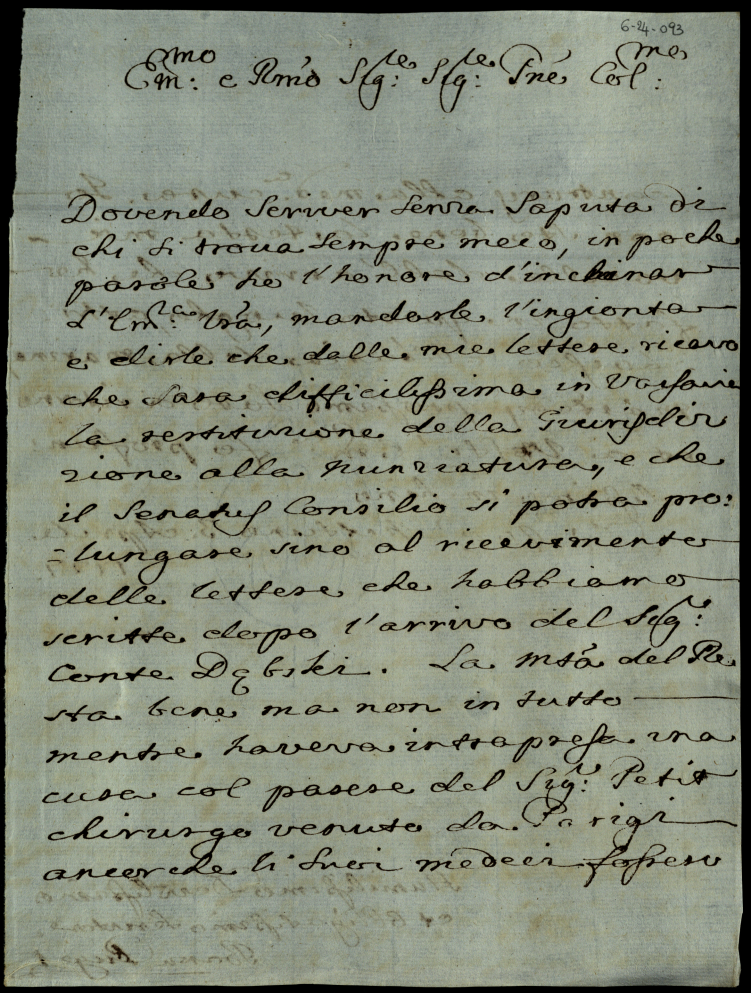 6-24-093
Em:mo e Rmo Sig:re Sig:re Pne Col:mo
Dovendo scriver senza saputa di
chi si trova sempre meco, in poche
parole ho l'honore d'inchinar
L'Em:za Vra, mandarle l'ingionta
e dirle che dalle mie lettere ricavo
che sara difficilissima in Varsavia
la restituzione della Giurisdiz
zione alla Nunziatura, e che
il Senatus Consilio si potra pro:
=lungare sino al ricevimento
delle lettere che habbiamo
scritte dopo l'arrivo del Sig:r
Conte Dębski. La Mtà del Re
sta bene ma non in tutto
mentre haveva intrapresa una
cura col parere del Sig:r Petit
chirurgo venuto da Parigi
ancorche li suoi medeci fossero